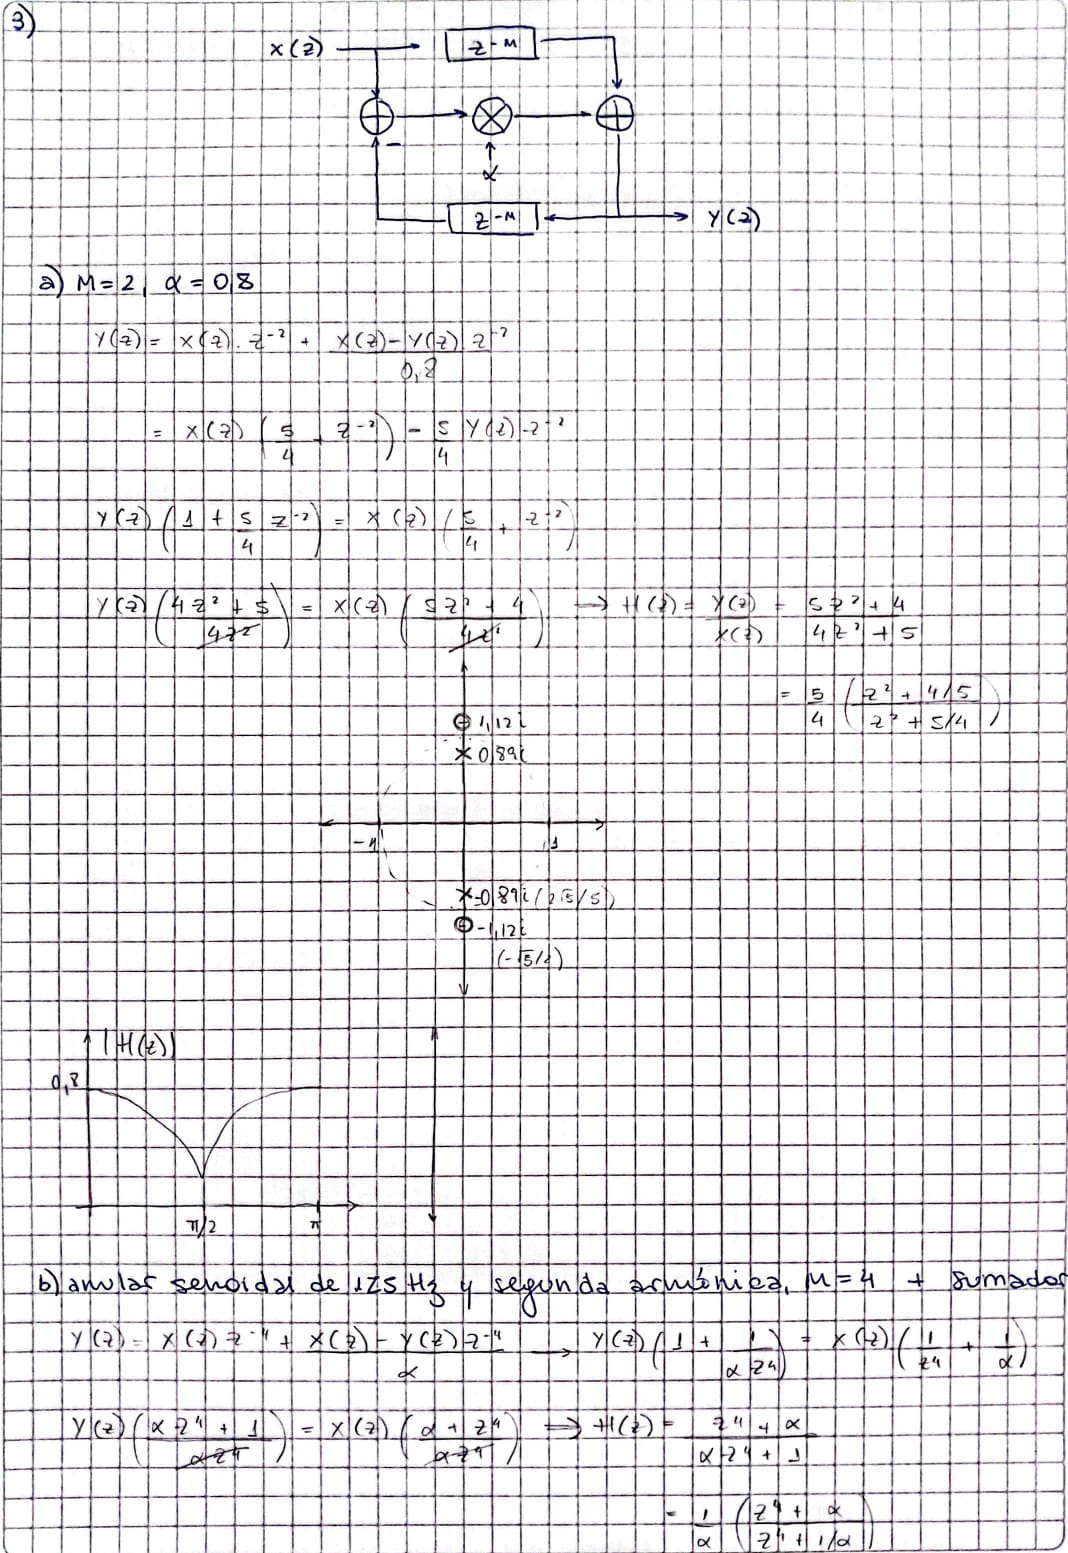 3)
X(z) z-M
α
z-M Y(z)
a) M=2, α=0,8
Y(z) = X(z). z⁻² + (X(z) - Y(z) z⁻²)/0,8
= X(z) (5/4 + z⁻²) - 5/4 Y(z) z⁻²
Y(z) (1 + 5/4 z⁻²) = X(z) (5/4 + z⁻²)
Y(z) ((4z² + 5)/4z²) = X(z) ((5z² + 4)/4z²) ⟹ H(z) = Y(z)/X(z) = (5z² + 4)/(4z² + 5)
= 5/4 ((z² + 4/5)/(z² + 5/4))
1,12i
0,89i
-1 1
-0,89i (2√5/5)
-1,12i
(-√5/2)
|H(z)|
0,8
π/2 π
b) anular senoidal de 125 Hz y segunda armónica, M=4 + sumador
Y(z) = X(z) z⁻⁴ + (X(z) - Y(z) z⁻⁴)/α → Y(z) (1 + 1/(α z⁴)) = X(z) (1/z⁴ + 1/α)
Y(z) ((α z⁴ + 1)/αz⁴) = X(z) ((α + z⁴)/αz⁴) ⟹ H(z) = (z⁴ + α)/(α z⁴ + 1)
= 1/α ((z⁴ + α)/(z⁴ + 1/α))